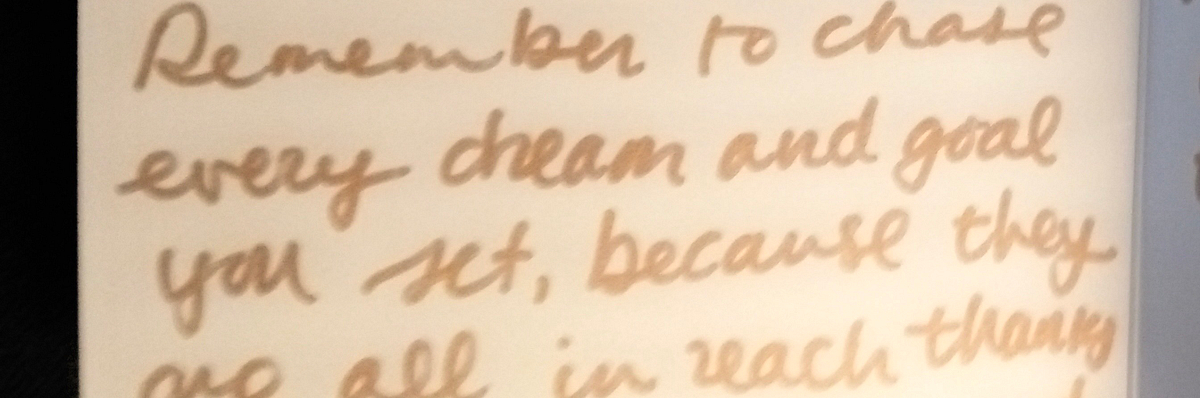 Remember to chase
every dream and goal
you set, because they
are all in reach thanks